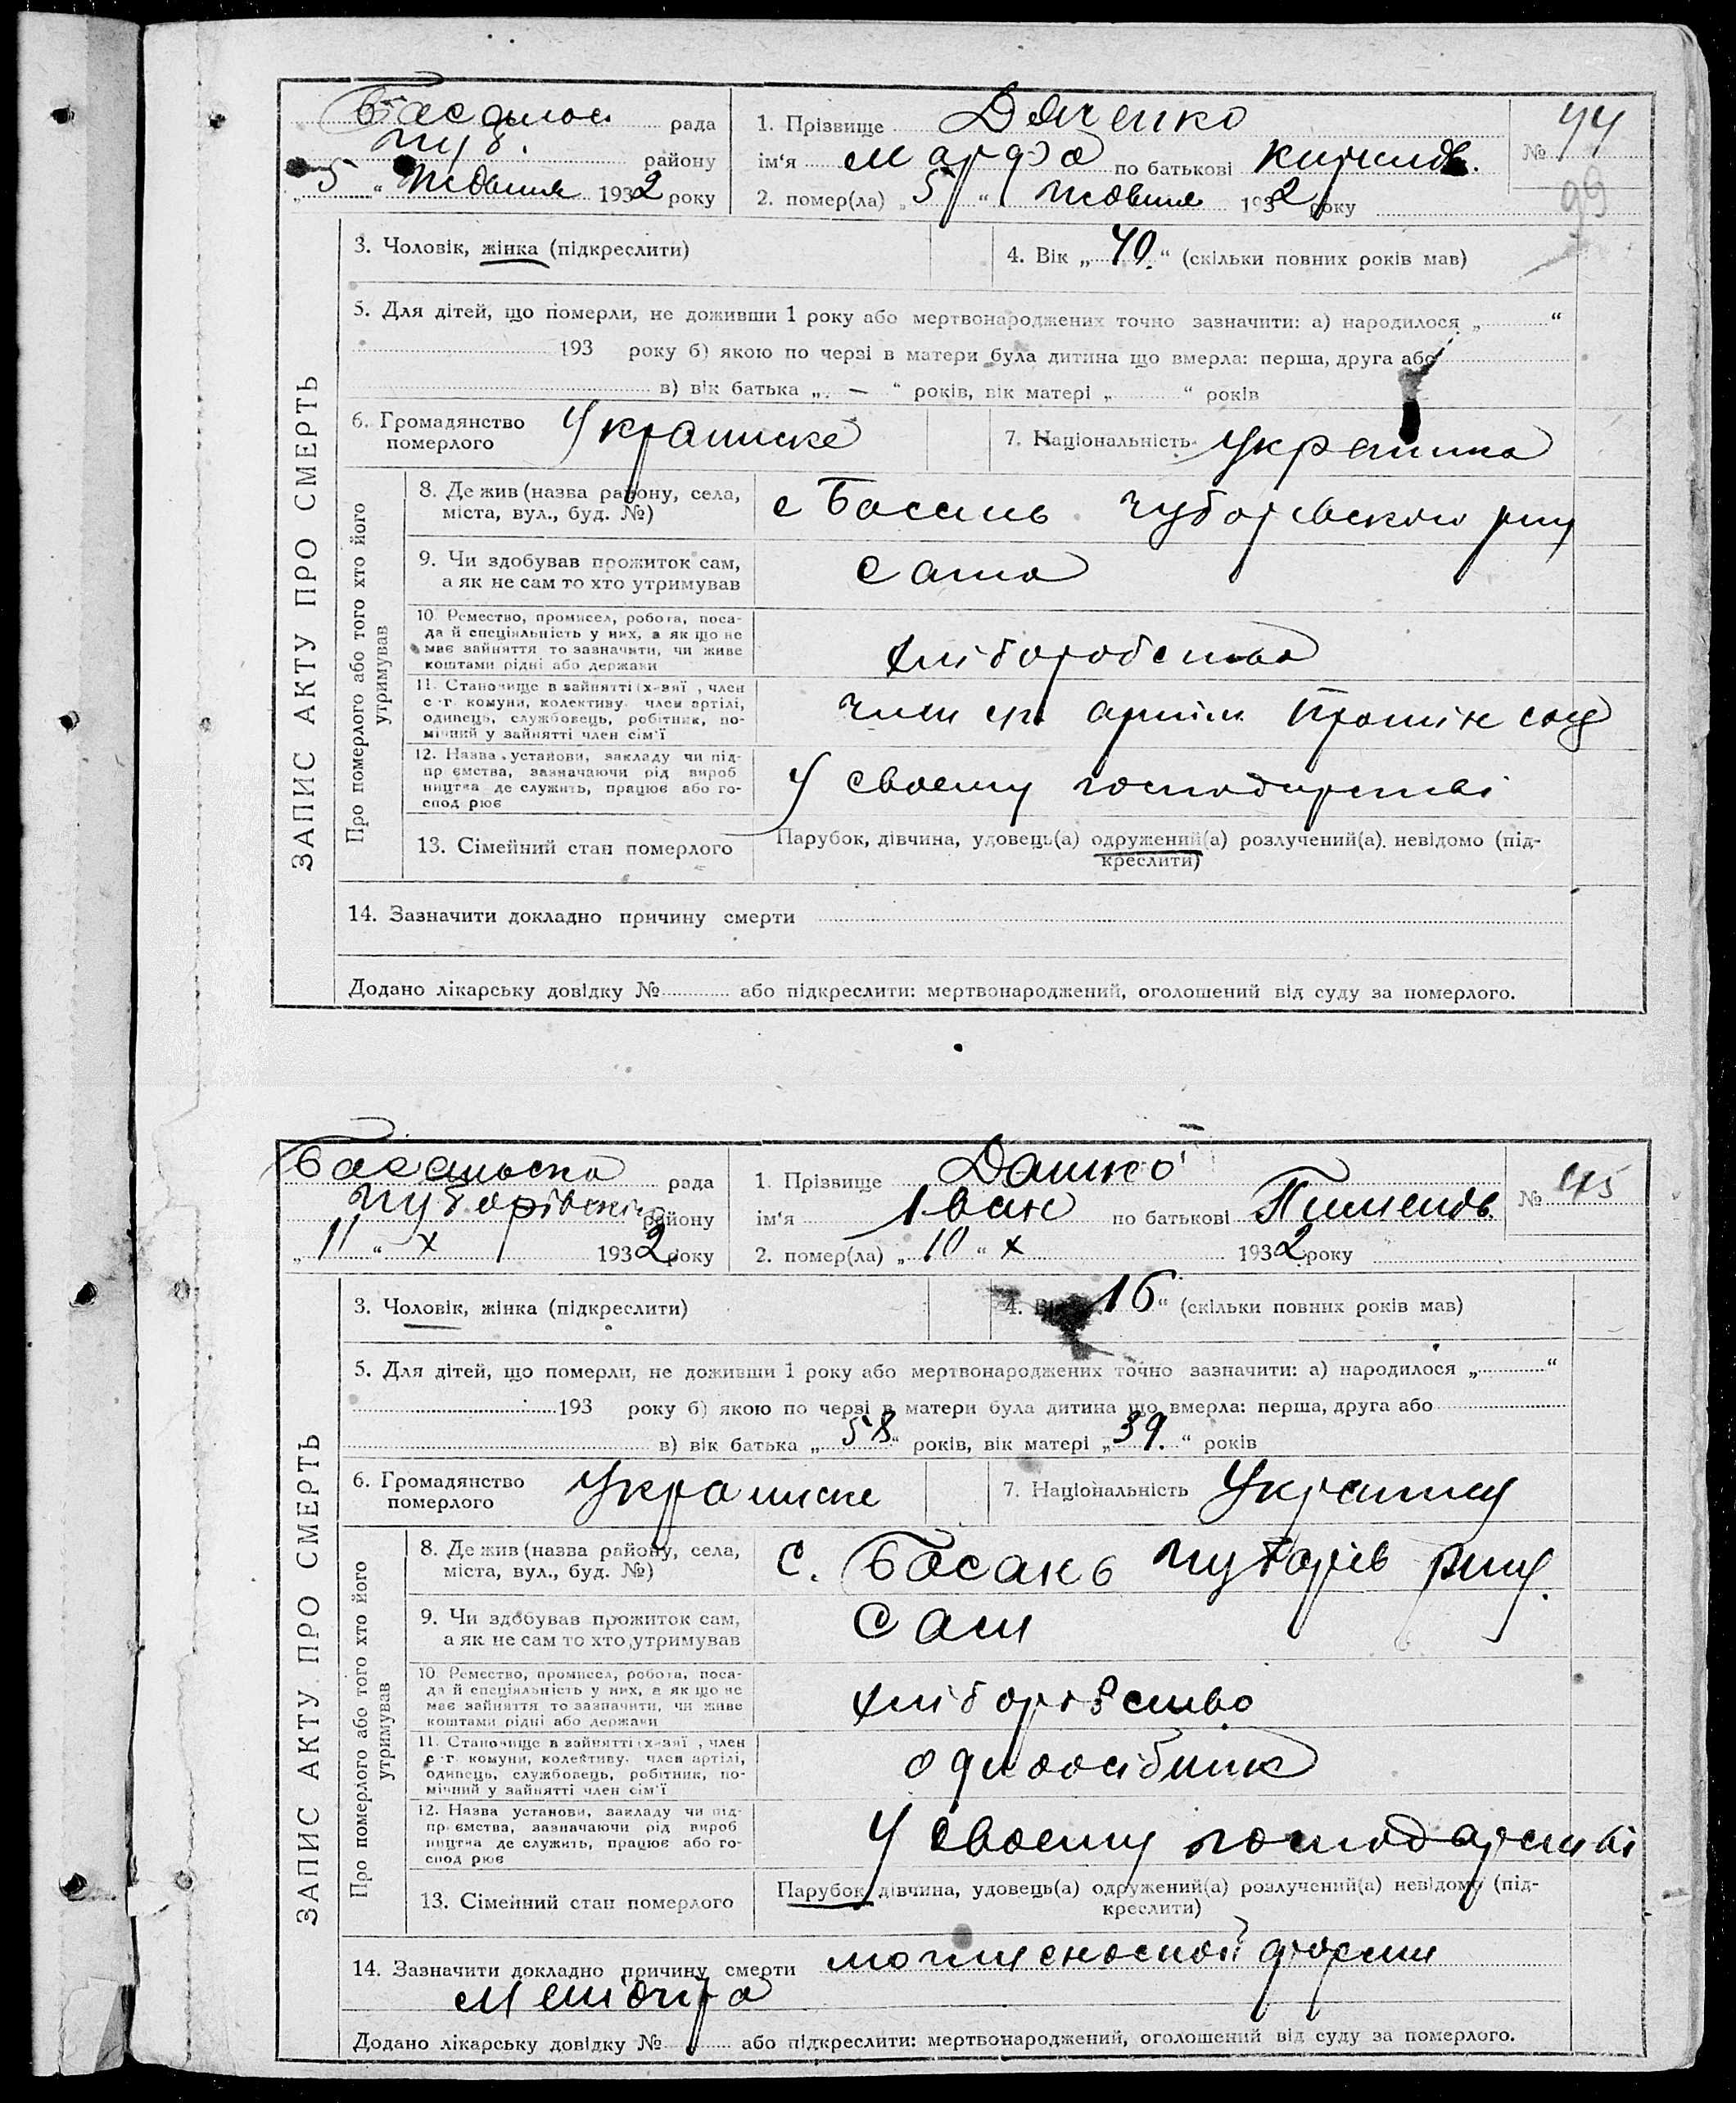 Басанськ рада
Чуб. району
„ 5 “ Жовтня 1932 року
1. Прізвище Дяченко
ім'я Марфа по батькові Кирилов.
2. помер(ла) „ 5 “ Жовтня 1932 року
№ 44
99
ЗАПИС АКТУ ПРО СМЕРТЬ
3. Чоловік, жінка (підкреслити)
4. Вік „ 40. “ (скільки повних років мав)
5. Для дітей, що померли, не доживши 1 року або мертвонароджених точно зазначити: а) народилося „ “
193 року б) якою по черзі в матери була дитина що вмерла: перша, друга або
в) вік батька „ — “ років, вік матері „ “ років
6. Громадянство померлого Украинске
7. Національність Украинка
Про померлого або того хто його утримував
8. Де жив (назва району, села,
міста, вул., буд. №)
с Басань Чубарівского рну
9. Чи здобував прожиток сам,
а як не сам то хто утримував
сама
10. Ремество, промисел, робота, поса-
да й спеціяльність у них, а як що не
має зайняття то зазначити, чи живе
коштами рідні або держави
хліборобство
11. Становище в зайнятті (х-зяї , член
с-г. комуни, колективу, член артілі,
одинець, службовець, робітник, по-
мічний у зайнятті член сім'ї
член артіли Промінь
12. Назва установи, закладу чи під-
пр ємства, зазначаючи рід вироб
ництва де служить, працює або го-
спод рює
У своему господарстві
13. Сімейний стан померлого
Парубок, дівчина, удовець(а) одружений(а) розлучений(а). невідомо (під-
креслити)
14. Зазначити докладно причину смерти
Додано лікарську довідку № або підкреслити: мертвонароджений, оголошений від суду за померлого.
Басанська рада
Чубарівськ району
„ 11 “ X 1932 року
1. Прізвище Дашко
ім'я Іван по батькові Пименов.
2. помер(ла) „ 10 “ X 1932 року
№ 45
ЗАПИС АКТУ ПРО СМЕРТЬ
3. Чоловік, жінка (підкреслити)
4. Вік 16 “ (скільки повних років мав)
5. Для дітей, що померли, не доживши 1 року або мертвонароджених точно зазначити: а) народилося „ “
193 року б) якою по черзі в матери була дитина що вмерла: перша, друга або
в) вік батька „ 58 “ років, вік матері „ 39. “ років
6. Громадянство померлого Украинске
7. Національність Украинец
Про померлого або того хто його утримував
8. Де жив (назва району, села,
міста, вул., буд. №)
С. Басань Чубарів рну.
9. Чи здобував прожиток сам,
а як не сам то хто утримував
Сам
10. Ремество, промисел, робота, поса-
да й спеціяльність у них, а як що не
має зайняття то зазначити, чи живе
коштами рідні або держави
хліборобство
11. Становище в зайнятті (х-зяї , член
с-г. комуни, колективу, член артілі,
одинець, службовець, робітник, по-
мічний у зайнятті член сім'ї
одноосібник
12. Назва установи, закладу чи під-
пр ємства, зазначаючи рід вироб
ництва де служить, працює або го-
спод рює
У своему господарстві
13. Сімейний стан померлого
Парубок, дівчина, удовець(а) одружений(а) розлучений(а) невідомо (під-
креслити)
14. Зазначити докладно причину смерти форми
Додано лікарську довідку № або підкреслити: мертвонароджений, оголошений від суду за померлого.